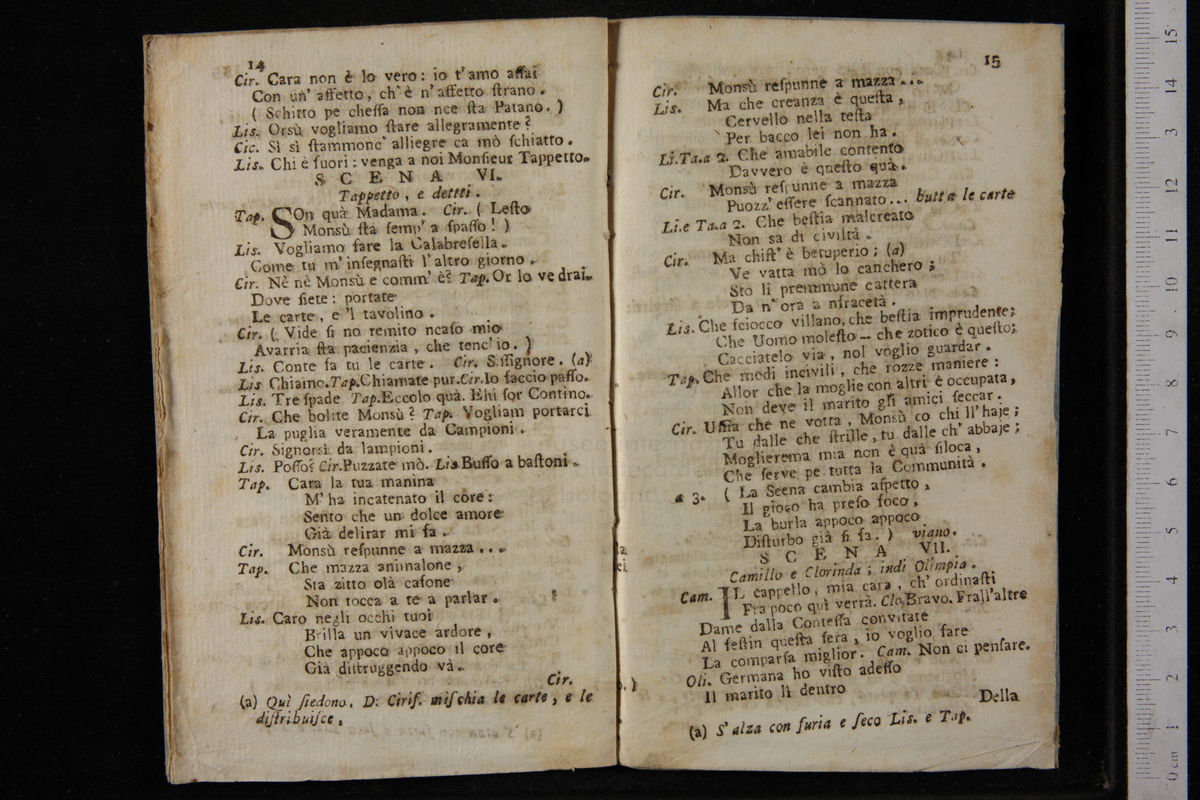 14
Cir. Cara non è lo vero: io t'amo aſſai
Con un' affetto, ch'è n'affetto ſtrano.
( Schitto pe cheſſa non nce ſta Patano. )
Lis. Orsù vogliamo ſtare allegramente?
Cic. Sì sì ſtammonc' alliegre ca mò ſchiatto.
Lis. Chi è fuori: venga a noi Monſieur Tappetto.
SCENA VI.
Tappetto, e dettti.
Tap. SOn quà Madama. Cir. ( Leſto
Monsù ſtà ſemp' a ſpaſſo! )
Lis. Vogliamo fare la Calabreſella.
Come tu m' inſegnaſti l'altro giorno.
Cir. Nè nè Monsù e comm' è? Tap. Or lo vedrai.
Dove ſiete: portate
Le carte, e 'l tavolino.
Cir. ( Vide ſi no remito ncaſo mio
Avarria ſta pacienzia, che tenc' io. )
Lis. Conte fa tu le carte. Cir. Siſſignore. (a)
Lis Chiamo. Tap. Chiamate pur. Cir. Io faccio paſſo.
Lis. Tre ſpade Tap. Eccolo quà. Ehi ſor Contino.
Cir. Che bolite Monsù? Tap. Vogliam portarci
La puglia veramente da Campioni.
Cir. Signorsì da lampioni.
Lis. Poſſo? Cir. Puzzate mò. Lis Buſſo a baſtoni.
Tap. Cara la tua manina
M' ha incatenato il core:
Sento che un dolce amore
Già delirar mi fa.
Cir. Monsù reſpunne a mazza...
Tap. Che mazza animalone,
Sta zitto olà cafone
Non tocca a te a parlar.
Lis. Caro negli occhi tuoi
Brilla un vivace ardore,
Che appoco appoco il core
Già diſtruggendo và.
Cir.
(a) Quì ſiedono, D. Cirif. miſchia le carte, e le
diſtribuiſce.
15
Cir. Monsù reſpunne a mazza...
Lis. Ma che creanza è queſta,
Cervello nella teſta
Per bacco lei non ha.
Li.Ta.a 2. Che amabile contento
Davvero è queſto quà.
Cir. Monsù reſpunne a mazza
Puozz' eſſere ſcannato... butta le carte
Li.e Ta.a 2. Che beſtia malcreato
Non sa di civiltà.
Cir. Ma chiſt' è betuperio; (a)
Ve vatta mò lo canchero;
Sto li premmune cattera
Da n' ora a nfracetà.
Lis. Che ſciocco villano, che beſtia imprudente;
Che Uomo moleſto -- che zotico è queſto;
Cacciatelo via, nol voglio guardar.
Tap. Che modi incivili, che rozze maniere:
Allor che la moglie con altri è occupata,
Non deve il marito gli amici ſeccar.
Cir. Uſſia che ne votta, Monsù co chi ll'haje;
Tu dalle che ſtrille, tu dalle ch' abbaje;
Moglierema mia non è quà filoca,
Che ſerve pe tutta la Communità.
a 3. ( La Scena cambia aſpetto,
Il gioco ha preſo foco,
La burla appoco appoco
Diſturbo già ſi fa. ) viano.
SCENA VII.
Camillo e Clorinda; indi Olimpia.
Cam. IL cappello, mia cara, ch' ordinaſti
Fra poco quì verrà. Clo. Bravo. Frall'altre
Dame dalla Conteſſa convitate
Al feſtin queſta ſera, io voglio fare
La comparſa miglior. Cam. Non ci penſare.
Oli. Germana ho viſto adeſſo
Il marito lì dentro
Della
(a) S' alza con furia e ſeco Lis. e Tap.